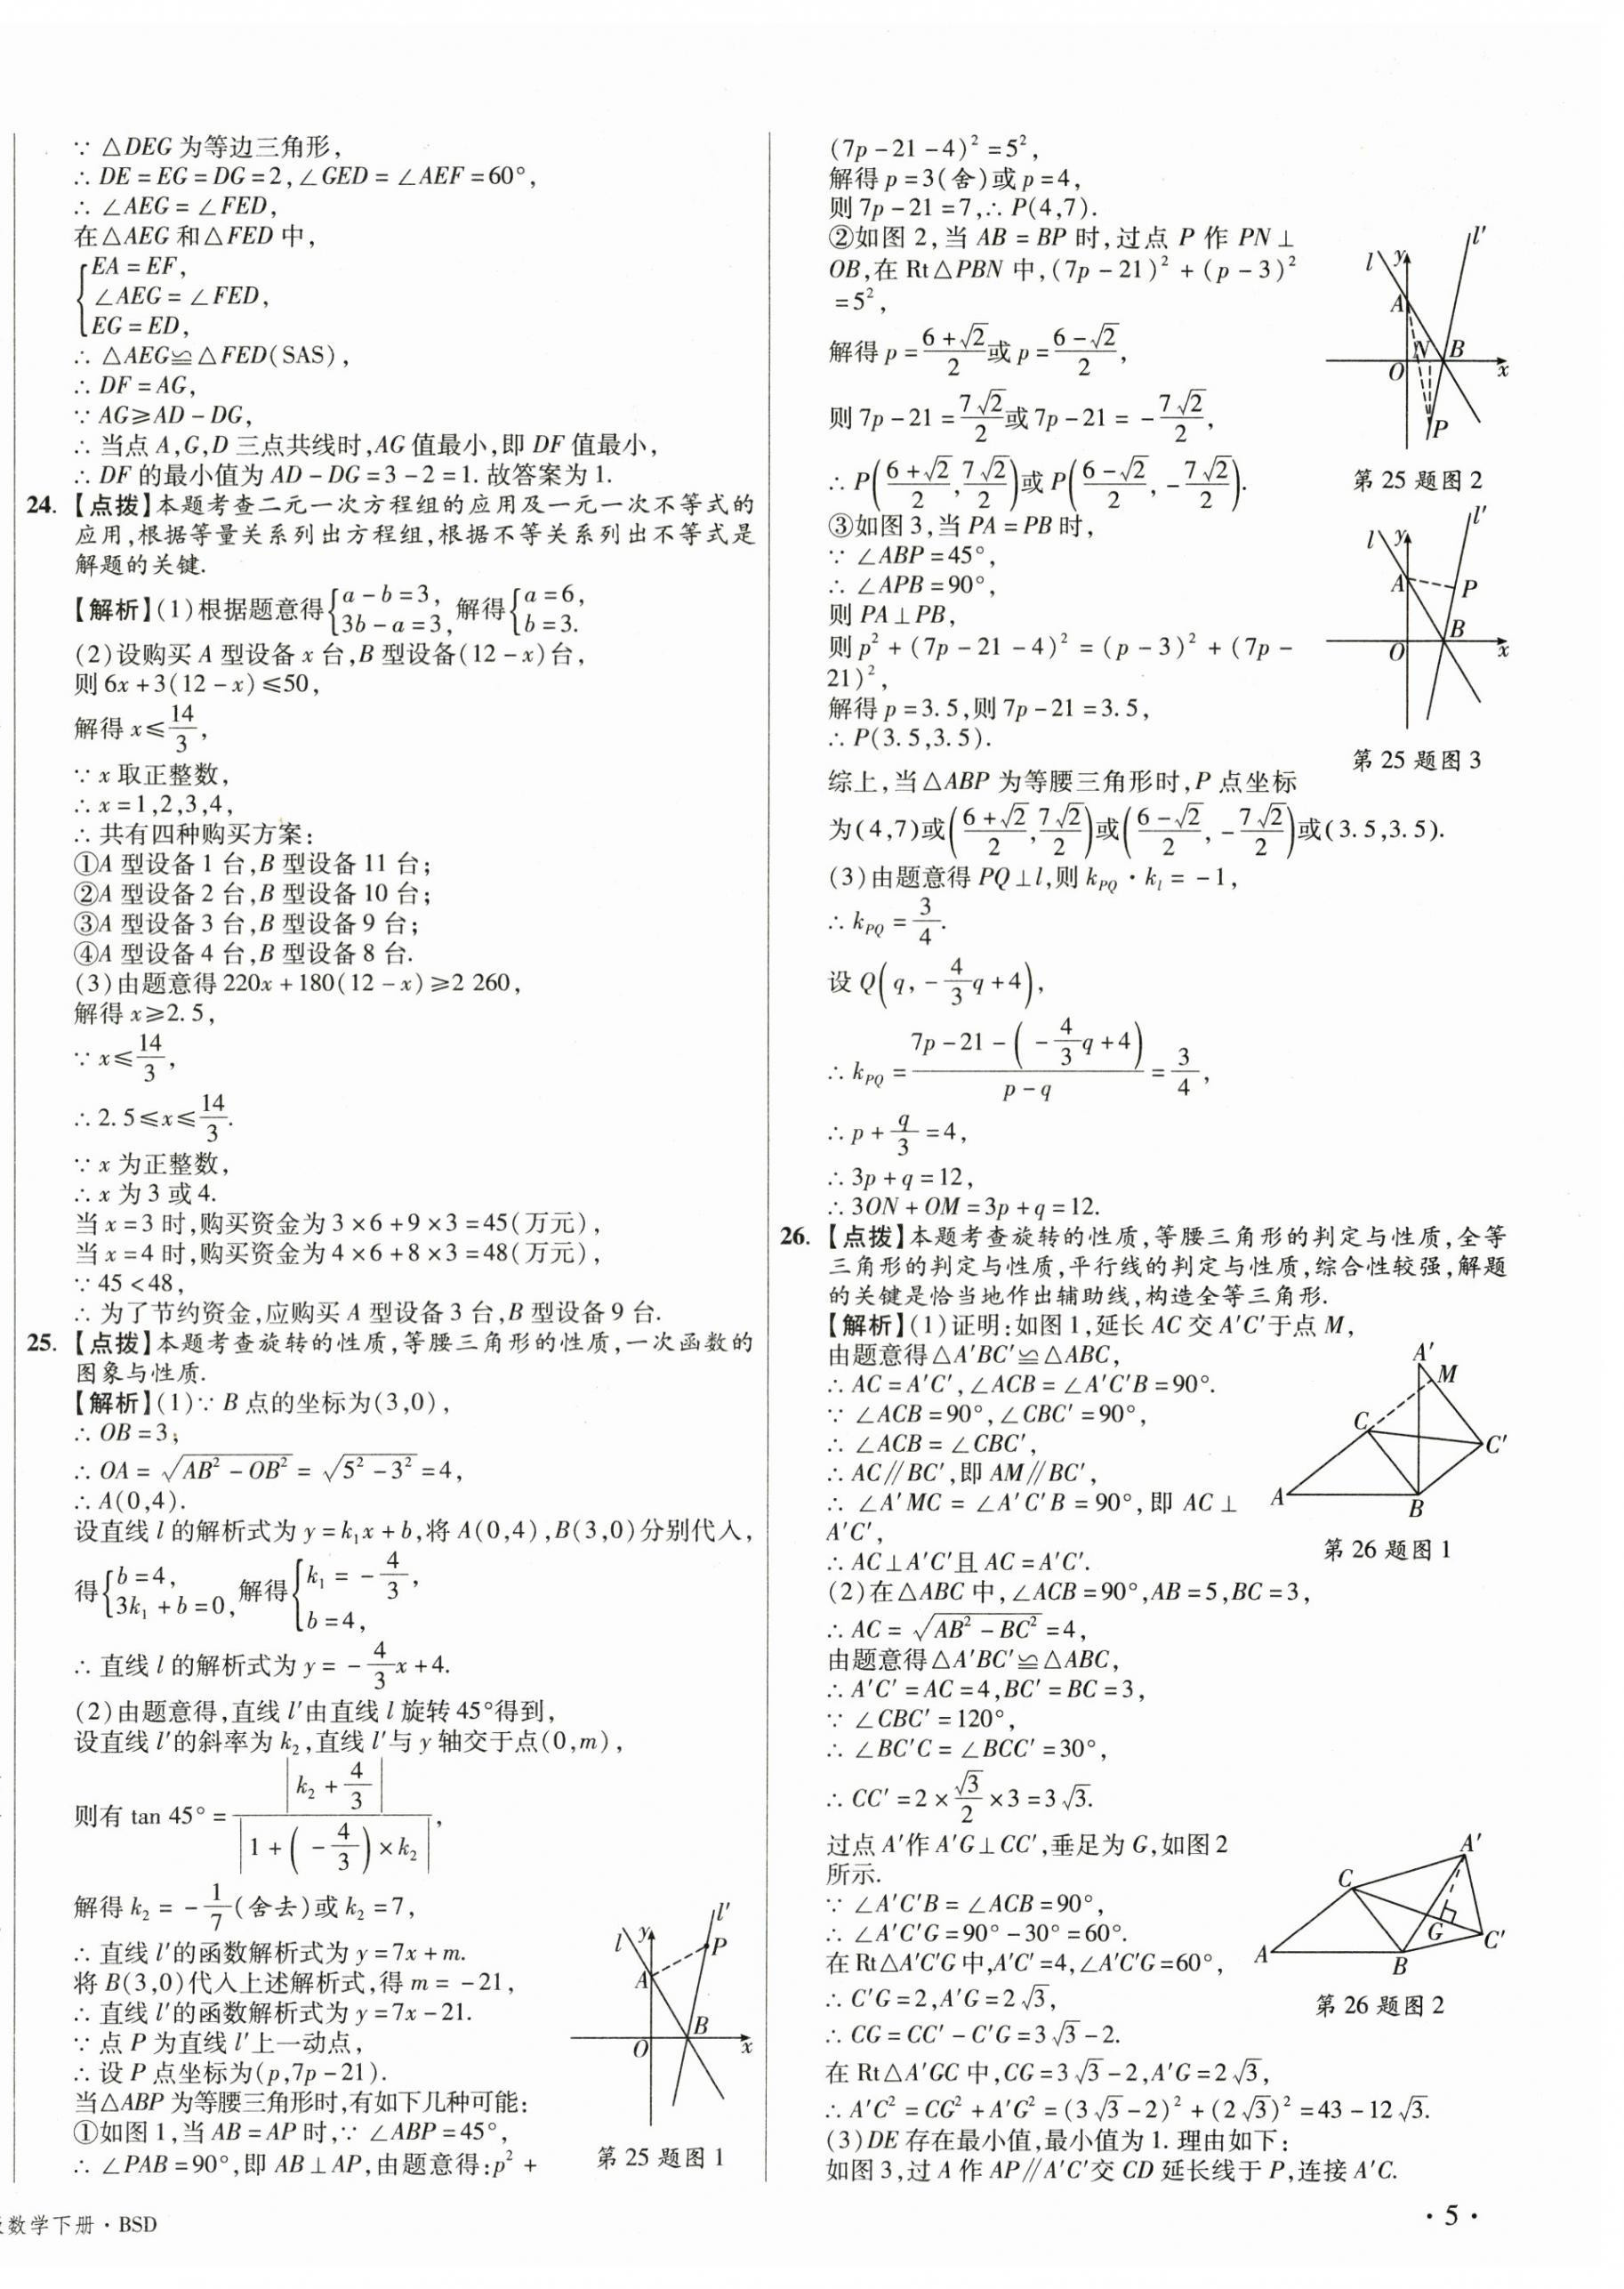 ∵ △DEG 为等边三角形，
∴ DE = EG = DG = 2，∠GED = ∠AEF = 60°，
∴ ∠AEG = ∠FED，
在△AEG 和△FED 中，
{EA = EF，
∠AEG = ∠FED，
EG = ED，
∴ △AEG≌△FED(SAS)，
∴ DF = AG，
∵ AG≥AD - DG，
∴ 当点 A,G,D 三点共线时，AG 值最小，即 DF 值最小，
∴ DF 的最小值为 AD - DG = 3 - 2 = 1. 故答案为 1.
24. 【点拨】本题考查二元一次方程组的应用及一元一次不等式的
应用，根据等量关系列出方程组，根据不等关系列出不等式是
解题的关键.
【解析】(1)根据题意得{a - b = 3，3b - a = 3，解得{a = 6，b = 3.
(2)设购买 A 型设备 x 台，B 型设备(12 - x)台，
则 6x + 3(12 - x)≤50，
解得 x≤14/3，
∵ x 取正整数，
∴ x = 1,2,3,4，
∴ 共有四种购买方案：
①A 型设备 1 台，B 型设备 11 台；
②A 型设备 2 台，B 型设备 10 台；
③A 型设备 3 台，B 型设备 9 台；
④A 型设备 4 台，B 型设备 8 台.
(3)由题意得 220x + 180(12 - x)≥2 260，
解得 x≥2.5，
∵ x≤14/3，
∴ 2.5≤x≤14/3.
∵ x 为正整数，
∴ x 为 3 或 4.
当 x = 3 时，购买资金为 3×6 + 9×3 = 45(万元)，
当 x = 4 时，购买资金为 4×6 + 8×3 = 48(万元)，
∵ 45 < 48，
∴ 为了节约资金，应购买 A 型设备 3 台，B 型设备 9 台.
25. 【点拨】本题考查旋转的性质，等腰三角形的性质，一次函数的
图象与性质.
【解析】(1)∵ B 点的坐标为(3,0)，
∴ OB = 3，
∴ OA = √(AB² - OB²) = √(5² - 3²) = 4，
∴ A(0,4).
设直线 l 的解析式为 y = k₁x + b，将 A(0,4)，B(3,0)分别代入，
得{b = 4，3k₁ + b = 0，解得{k₁ = -4/3，b = 4，
∴ 直线 l 的解析式为 y = -4/3x + 4.
(2)由题意得，直线 l′由直线 l 旋转 45°得到，
设直线 l′的斜率为 k₂，直线 l′与 y 轴交于点(0,m)，
则有 tan 45° = |k₂ + 4/3| / |1 + (-4/3)×k₂|，
解得 k₂ = -1/7(舍去)或 k₂ = 7，
∴ 直线 l′的函数解析式为 y = 7x + m.
将 B(3,0)代入上述解析式，得 m = -21，
∴ 直线 l′的函数解析式为 y = 7x - 21.
∵ 点 P 为直线 l′上一动点，
∴ 设 P 点坐标为(p,7p - 21).
当△ABP 为等腰三角形时，有如下几种可能：
①如图 1，当 AB = AP 时，∵ ∠ABP = 45°，
∴ ∠PAB = 90°，即 AB⊥AP，由题意得：p² +
l y l′ P A B O x
第 25 题图 1
级数学下册·BSD
(7p - 21 - 4)² = 5²，
解得 p = 3(舍)或 p = 4，
则 7p - 21 = 7，∴ P(4,7).
②如图 2，当 AB = BP 时，过点 P 作 PN⊥
OB，在 Rt△PBN 中，(7p - 21)² + (p - 3)²
= 5²，
解得 p = (6 + √2)/2 或 p = (6 - √2)/2，
则 7p - 21 = 7√2/2 或 7p - 21 = -7√2/2，
∴ P((6 + √2)/2, 7√2/2)或 P((6 - √2)/2, -7√2/2).
l y l′ A N B O x P
第 25 题图 2
③如图 3，当 PA = PB 时，
∵ ∠ABP = 45°，
∴ ∠APB = 90°，
则 PA⊥PB，
则 p² + (7p - 21 - 4)² = (p - 3)² + (7p -
21)²，
解得 p = 3.5，则 7p - 21 = 3.5，
∴ P(3.5,3.5).
l y l′ A P B O x
第 25 题图 3
综上，当△ABP 为等腰三角形时，P 点坐标
为(4,7)或((6 + √2)/2, 7√2/2)或((6 - √2)/2, -7√2/2)或(3.5,3.5).
(3)由题意得 PQ⊥l，则 k_PQ · k_l = -1，
∴ k_PQ = 3/4.
设 Q(q, -4/3q + 4)，
∴ k_PQ = (7p - 21 - (-4/3q + 4))/(p - q) = 3/4，
∴ p + q/3 = 4，
∴ 3p + q = 12，
∴ 3ON + OM = 3p + q = 12.
26. 【点拨】本题考查旋转的性质，等腰三角形的判定与性质，全等
三角形的判定与性质，平行线的判定与性质，综合性较强，解题
的关键是恰当地作出辅助线，构造全等三角形.
【解析】(1)证明：如图 1，延长 AC 交 A′C′于点 M，
由题意得△A′BC′≌△ABC，
∴ AC = A′C′，∠ACB = ∠A′C′B = 90°.
∵ ∠ACB = 90°，∠CBC′ = 90°，
∴ ∠ACB = ∠CBC′，
∴ AC∥BC′，即 AM∥BC′，
∴ ∠A′MC = ∠A′C′B = 90°，即 AC⊥
A′C′，
∴ AC⊥A′C′且 AC = A′C′.
A′ M C C′ A B
第 26 题图 1
(2)在△ABC 中，∠ACB = 90°，AB = 5，BC = 3，
∴ AC = √(AB² - BC²) = 4，
由题意得△A′BC′≌△ABC，
∴ A′C′ = AC = 4，BC′ = BC = 3，
∵ ∠CBC′ = 120°，
∴ ∠BC′C = ∠BCC′ = 30°，
∴ CC′ = 2×√3/2×3 = 3√3.
过点 A′作 A′G⊥CC′，垂足为 G，如图 2
所示.
∵ ∠A′C′B = ∠ACB = 90°，
∴ ∠A′C′G = 90° - 30° = 60°.
在 Rt△A′C′G 中，A′C′ = 4，∠A′C′G = 60°，
∴ C′G = 2，A′G = 2√3，
∴ CG = CC′ - C′G = 3√3 - 2.
A′ C G C′ A B
第 26 题图 2
在 Rt△A′GC 中，CG = 3√3 - 2，A′G = 2√3，
∴ A′C² = CG² + A′G² = (3√3 - 2)² + (2√3)² = 43 - 12√3.
(3)DE 存在最小值，最小值为 1. 理由如下：
如图 3，过 A 作 AP∥A′C′交 CD 延长线于 P，连接 A′C.
· 5 ·